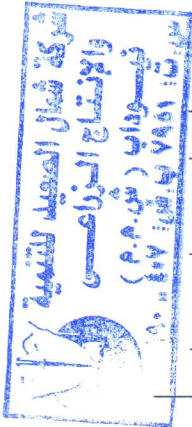 شركة شمال الصعيد للتنمية
والإنتاج الزراعى
نيوداب (ش.م.م)